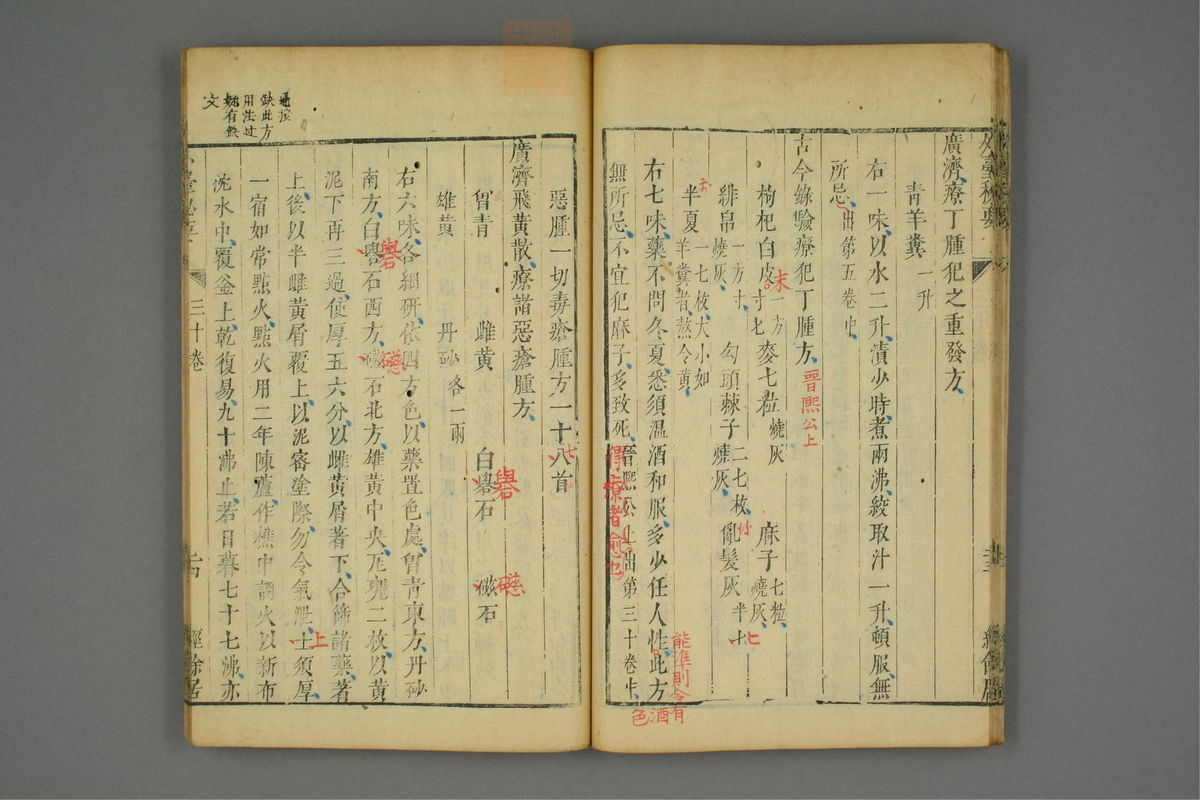 廣濟療丁腫犯之重發方
青羊糞一升
右一味以水二升漬少時煮兩沸絞取汁一升頓服無
所忌出第五卷中
古今錄驗療犯丁腫方
晉熙公上
枸杞白皮
末
一方
寸七
麥七粒
燒灰
麻子
七粒
燒灰
緋帛
一方寸
燒灰
勾頭棘子
二七枚
燒灰
亂髮灰
半
七
半夏
一七枚大小如
羊糞者熬令黃
右七味藥不問冬夏悉須溫酒和服多少任人性此方
能準則令有
酒色
無所忌不宜犯麻子多致死
得療者愈也
晉熙公上出第三十卷中
惡腫一切毒瘡腫方一十八首
七
廣濟飛黃散療諸惡瘡腫方
曾青
雌黃
白礜石
礜
磁石
礠
雄黃
丹砂各一兩
右六味各細研依四方色以藥置色處曾青東方丹砂
南方白礜石西方磁石北方雄黃中央瓦甕二枚以黃
礜
礠
泥下再三過使厚五六分以雌黃屑著下合篩諸藥著
上後以半雌黃屑覆上以泥密塗際勿令氣泄土須厚
上
一宿如常點火點火用二年陳蘆作樵中調火以新布
沈水中覆釜上乾復易九十沸止若日暮七十七沸亦
三十卷
經餘居
通按
缺此方
用法过
文